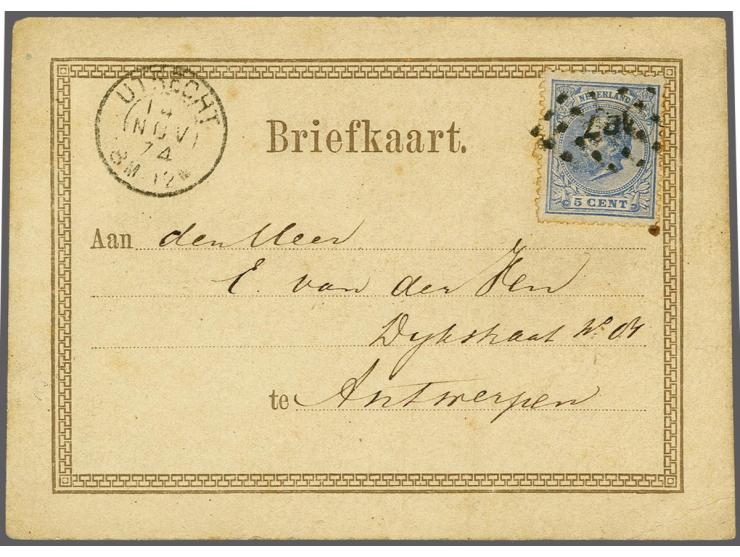 UTRECHT
14
NOV
74
8M-12M
NEDERLAND
5 CENT
Briefkaart.
Aan den Heer
E. van der Hen
Dykstraat No
te Antwerpen